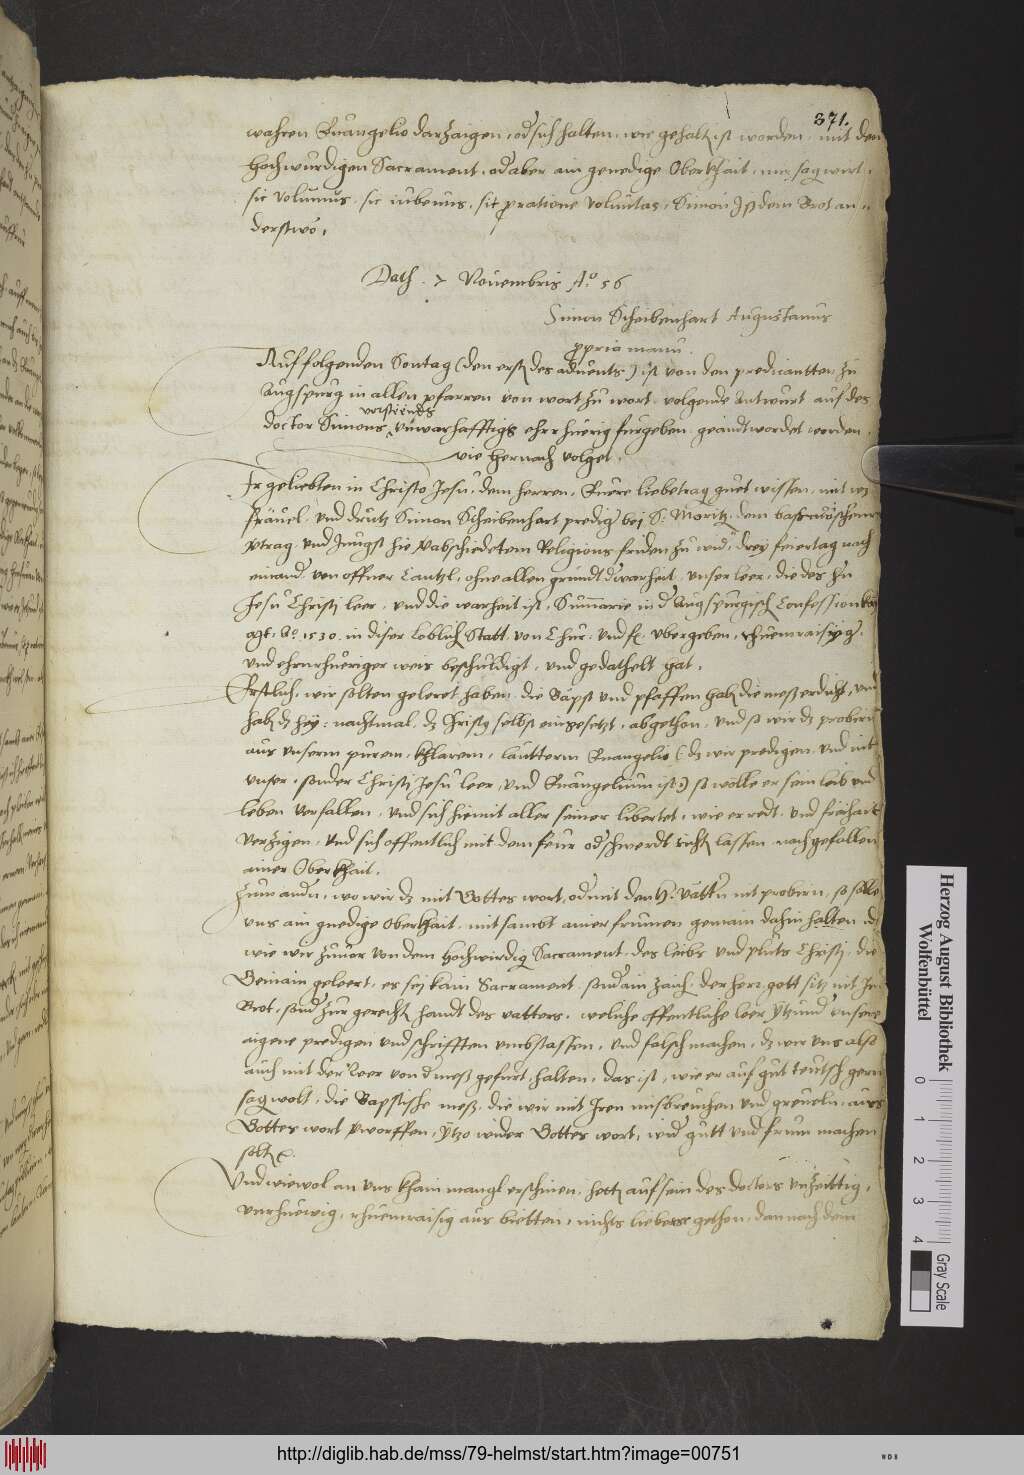 371.
wahren Euangelio darzaigen, od sich halten, wie gehalt ist worden, mit dem
Hochwurdigen Sacrament, od aber ain genedige Oberkhait, wie sag wirt,
sic volumus, sic iubemus, sit pro ratione voluntas, Simon Ist dem Brot an-
derstwo.
Dath. 7 Nouembris Ao 56
Simon Scheibenhart Augustanus
propria manu.
Auf folgenden Sontag (den erst des aduents) ist von den predicantten zu
Augspurg in allen pfarren von wort zu wort volgende Antwurt auf des
doctor Simons unwarhafftigs ehrrhuerig furgeben geandtwordet worden,
wie hernach volget.
Ir geliebten in Christo Jesu dem herren, Euere liebe trag guet wissen, mit was
fräuel und drutz Simon Scheibenhart prediger bej S. Moritz, dem
vtrag und Jungst hie verabschiedetem Religions friden zu wid, drey feiertag nach
einand, von offner Cantzl, ohne allen grundt d warheit, unser leer, die des hern
Jesu Christi leer, und die warheit ist, Summarie in d Augspurgisch Confession
Ao 1530. in diser loblich Statt von Chur und f. ubergeben,
und ehrnrhuriger weis beschuldigt, und gedathelt hat.
Erstlich, wir solten geleret haben die Bäpst und pfaffen hab die mess erdicht, und
hab dz hey: nachtmal, dz Christus selbst eingesetzt, abgethon, und so wir dz probiern
aus unserm purem, khlarem, lautterm Euangelio (: dz wir predigen, und nit
unser, sonder Christi Jesu leer, und Euangelium ist:) so wölle er sein leib und
leben verfallen, und sich hiemit aller seiner libertet, wie er redt, und freihait
verzigen, und sich offentlich mit dem feur od schwerdt richt lassen nach gefallen
ainer Oberkhait.
Zum andn, wo wir dz mit Gottes wort, od mit den h. vättn nit probirn, so sölle
uns ain gnedige Oberkhait mit sambt ainer frumen gemain dahin halten dz
wie wir hieuor von dem hochwirdig Sacrament, des leibs und pluts Christi, die
Gemain geleert, es sej kain Sacrament, sond ain zaich, der herr gott sitz nit im
Brot, sond zur gerecht handt des vatters, welche offentliche leer ytzund unsere
aigene predigen und schrifften umbstossen, und falsch machen, dz wir uns also
auch mit der leer von d mess gefurt, halten, das ist, wie er auf gut teutsch gern
sag wolt, die Bapstische mess, die wir mit Iren misbreuchen und greueln, aus
Gottes wort vworffen, ytzo wider Gottes wort, wid gutt und frum machen
solt etc.
Und wiewol an uns khain mangl erschinen, hett auf sein des doctors unzeittig,
unrhuewig, rhuemraisig aus bietten, nichts liebers gethon, dan nach dem
Herzog August Bibliothek
Wolfenbüttel
0 1 2 3 4
Gray Scale
http://diglib.hab.de/mss/79-helmst/start.htm?image=00751